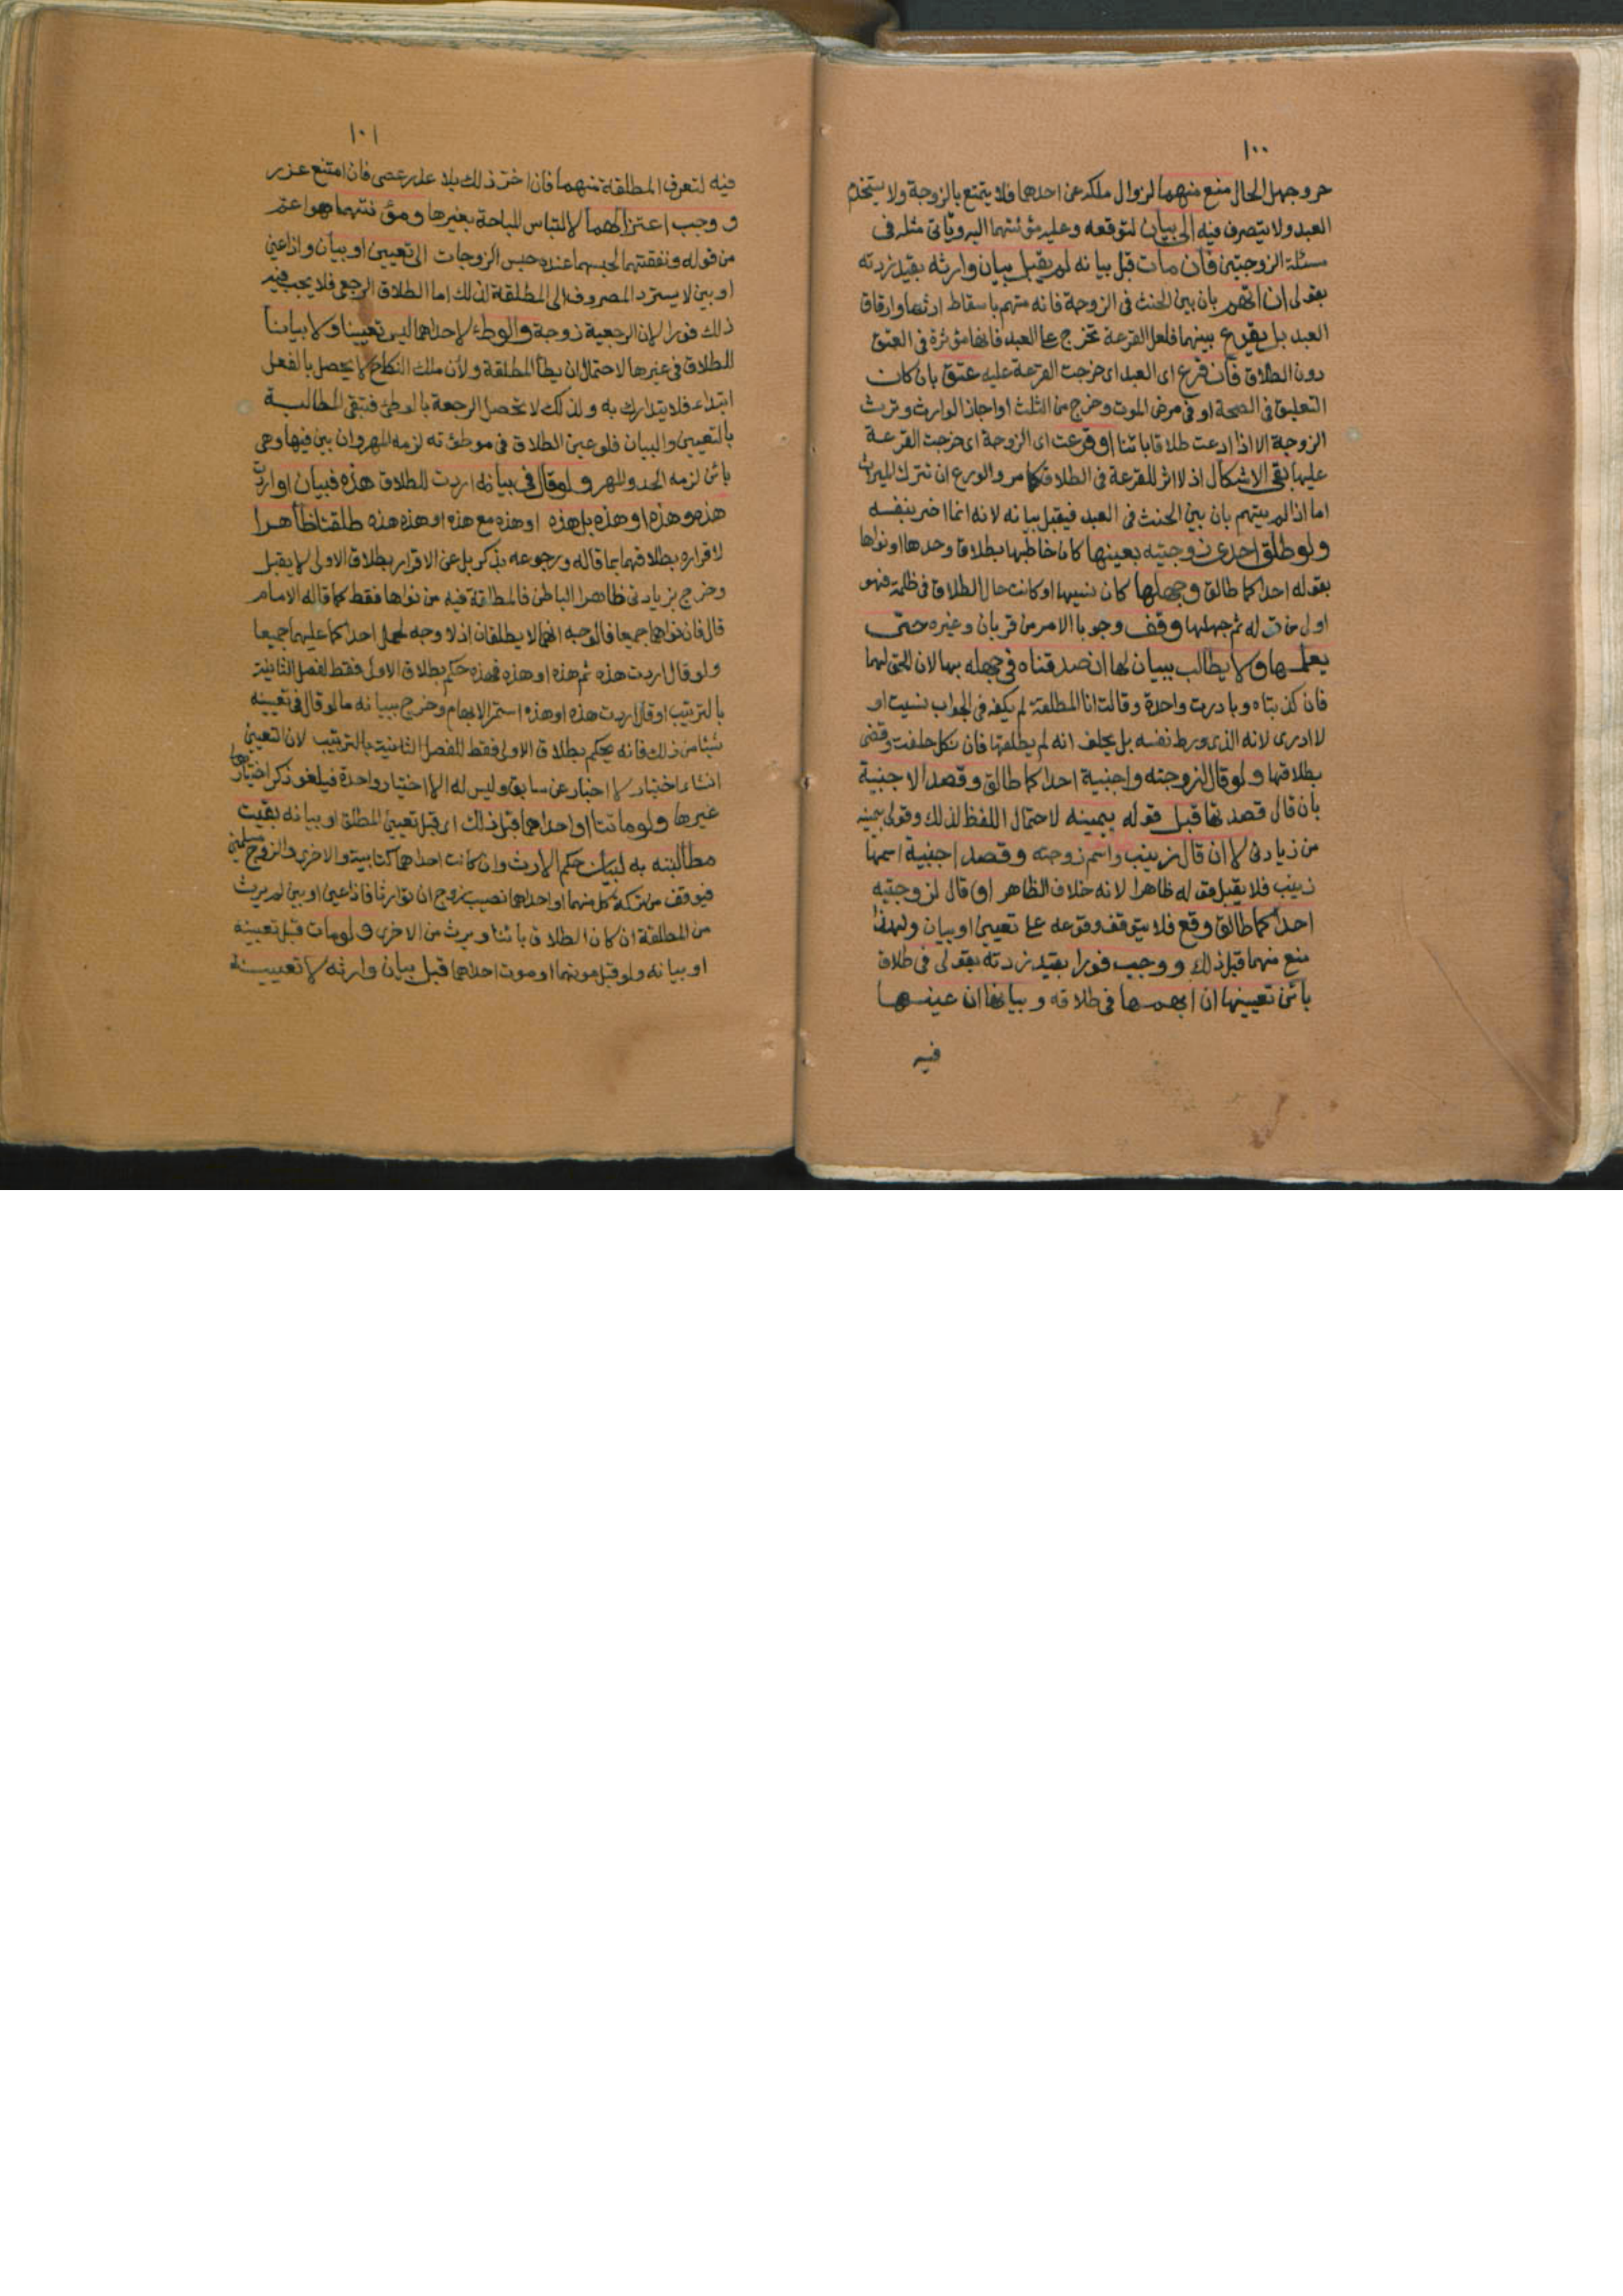 ١٠٠
حر وجهل الحال منع منهما لزوال ملكه عن احدهما فلا يتمتع بالزوجة ولا يستخدم
العبد ولا يتصرف فيه الى بيان لتوقعه وعليه مؤنتهما اليه وياتى مثله فى
مسئلة الزوجتين فان مات قبل بيانه لم يقبل بيان وارثه بقيد زدته
بقولى ان اتهم بان بين الحنث فى الزوجة فانه متهم باسقاط ارثها وارقاق
العبد بل يقرع بينهما فلعل القرعة تخرج على العبد فانها مؤثرة فى العتق
دون الطلاق فان قرع اى العبد اى خرجت القرعة عليه عتق بان كان
التعليق فى الصحة او فى مرض الموت وخرج من الثلث او اجاز الوارث وترث
الزوجة الا اذا ادعت طلاقا بائنا او قرعت اى الزوجة اى خرجت القرعة
عليها بقى الاشكال اذ لا اثر للقرعة فى الطلاق كما مر والورع ان تترك الميراث
اما اذا لم يتهم بان بين الحنث فى العبد فيقبل بيانه لانه انما اضر بنفسه
ولو طلق احدى زوجتيه بعينها كان خاطبها بطلاق وحدها او نواها
بقوله احداكما طالق وجهلها كان نسيها او كانت حال الطلاق فى ظلمة فهو
اولى من قوله ثم جهلها وقف وجوبا الامر من قربان وغيره حتى
يعلمها ولا يطالب ببيان لها ان صدقتاه فى جهله بها لان الحق لهما
فان كذبتاه وبادرت واحدة وقالت انا المطلقة لم يكفه فى الجواب نسيت او
لا ادرى لانه الذى ورط نفسه بل يحلف انه لم يطلقها فان نكل حلفت وقضى
بطلاقها ولو قال لزوجته واجنبية احداكما طالق وقصد الاجنبية
بان قال قصدتها قبل قوله بيمينه لاحتمال اللفظ لذلك وقولى بيمينه
من زيادتى لا ان قال زينب واسم زوجته وقصد اجنبية اسمها
زينب فلا يقبل قوله ظاهرا لانه خلاف الظاهر او قال لزوجتيه
احداكما طالق وقع فلا يتوقف وقوعه على تعيين او بيان ولهذا
منع منهما قبل ذلك ووجب فورا بقيد زدته بقولى فى طلاق
بائن تعيينها ان ابهمها فى طلاقه وبيانها ان عينها
فيه
١٠١
فيه لتعرف المطلقة منهما فان اخر ذلك بلا عذر عصى فان امتنع عزر
ووجب اعتزالهما لالتباس المباحة بغيرها ومؤنتهما هو اعم
من قوله ونفقتهما لحبسهما عنده حبس الزوجات الى تعيين او بيان واذا عين
او بين لا يسترد المصروف الى المطلقة لذلك اما الطلاق الرجعى فلا يجب فيه
ذلك فورا لان الرجعية زوجة والوطء لاحداهما ليس تعيينا ولا بيانا
للطلاق فى غيرها لاحتمال ان يطأ المطلقة ولأن ملك النكاح لا يحصل بالفعل
ابتداء فلا يتدارك به ولذلك لا تحصل الرجعة بالوطئ فتبقى المطالبة
بالتعيين والبيان فلو عين الطلاق فى موطؤته لزمه المهر وان بين فيها وهى
بائن لزمه الحد والمهر ولو قال فى بيانه اردت للطلاق هذه فبيان او اردت
هذه وهذه او هذه بل هذه او هذه مع هذه او هذه هذه طلقتا ظاهرا
لاقراره بطلاقهما بما قاله ورجوعه بذكر بل عن الاقرار بطلاق الاولى لا يقبل
وخرج بزيادتى ظاهرا الباطن فالمطلقة فيه من نواها فقط كما قاله الامام
قال فان نواهما جميعا فالوجه انهما لا يطلقان اذ لا وجه لحمل احداكما عليهما جميعا
ولو قال اردت هذه ثم هذه او هذه فهذه حكم بطلاق الاولى فقط لفصل الثانية
بالترتيب او قال اردت هذه او هذه استمر الابهام وخرج ببيانه ما لو قال فى تعيينه
شيئا من ذلك فانه يحكم بطلاق الاولى فقط لفصل الثانية بالترتيب لان التعيين
انشاء اختيار لا اخبار عن سابق وليس له الا اختيار واحدة فيلغو ذكر اختيار
غيرها ولو ماتتا او احداهما قبل ذلك اى قبل تعيين المطلق او بيانه بقيت
مطالبته به لبيان حكم الارث وان كانت احداهما كتابية والاخرى والزوج مسلمين
فيوقف من تركة كل منهما او احداهما نصيب زوج ان توارثا فاذا عين او بين لم يرث
من المطلقة ان كان الطلاق بائنا ويرث من الاخرى ولو مات قبل تعيينه
او بيانه ولو قبل موتهما او موت احداهما قبل بيان وارثه لا تعيينه